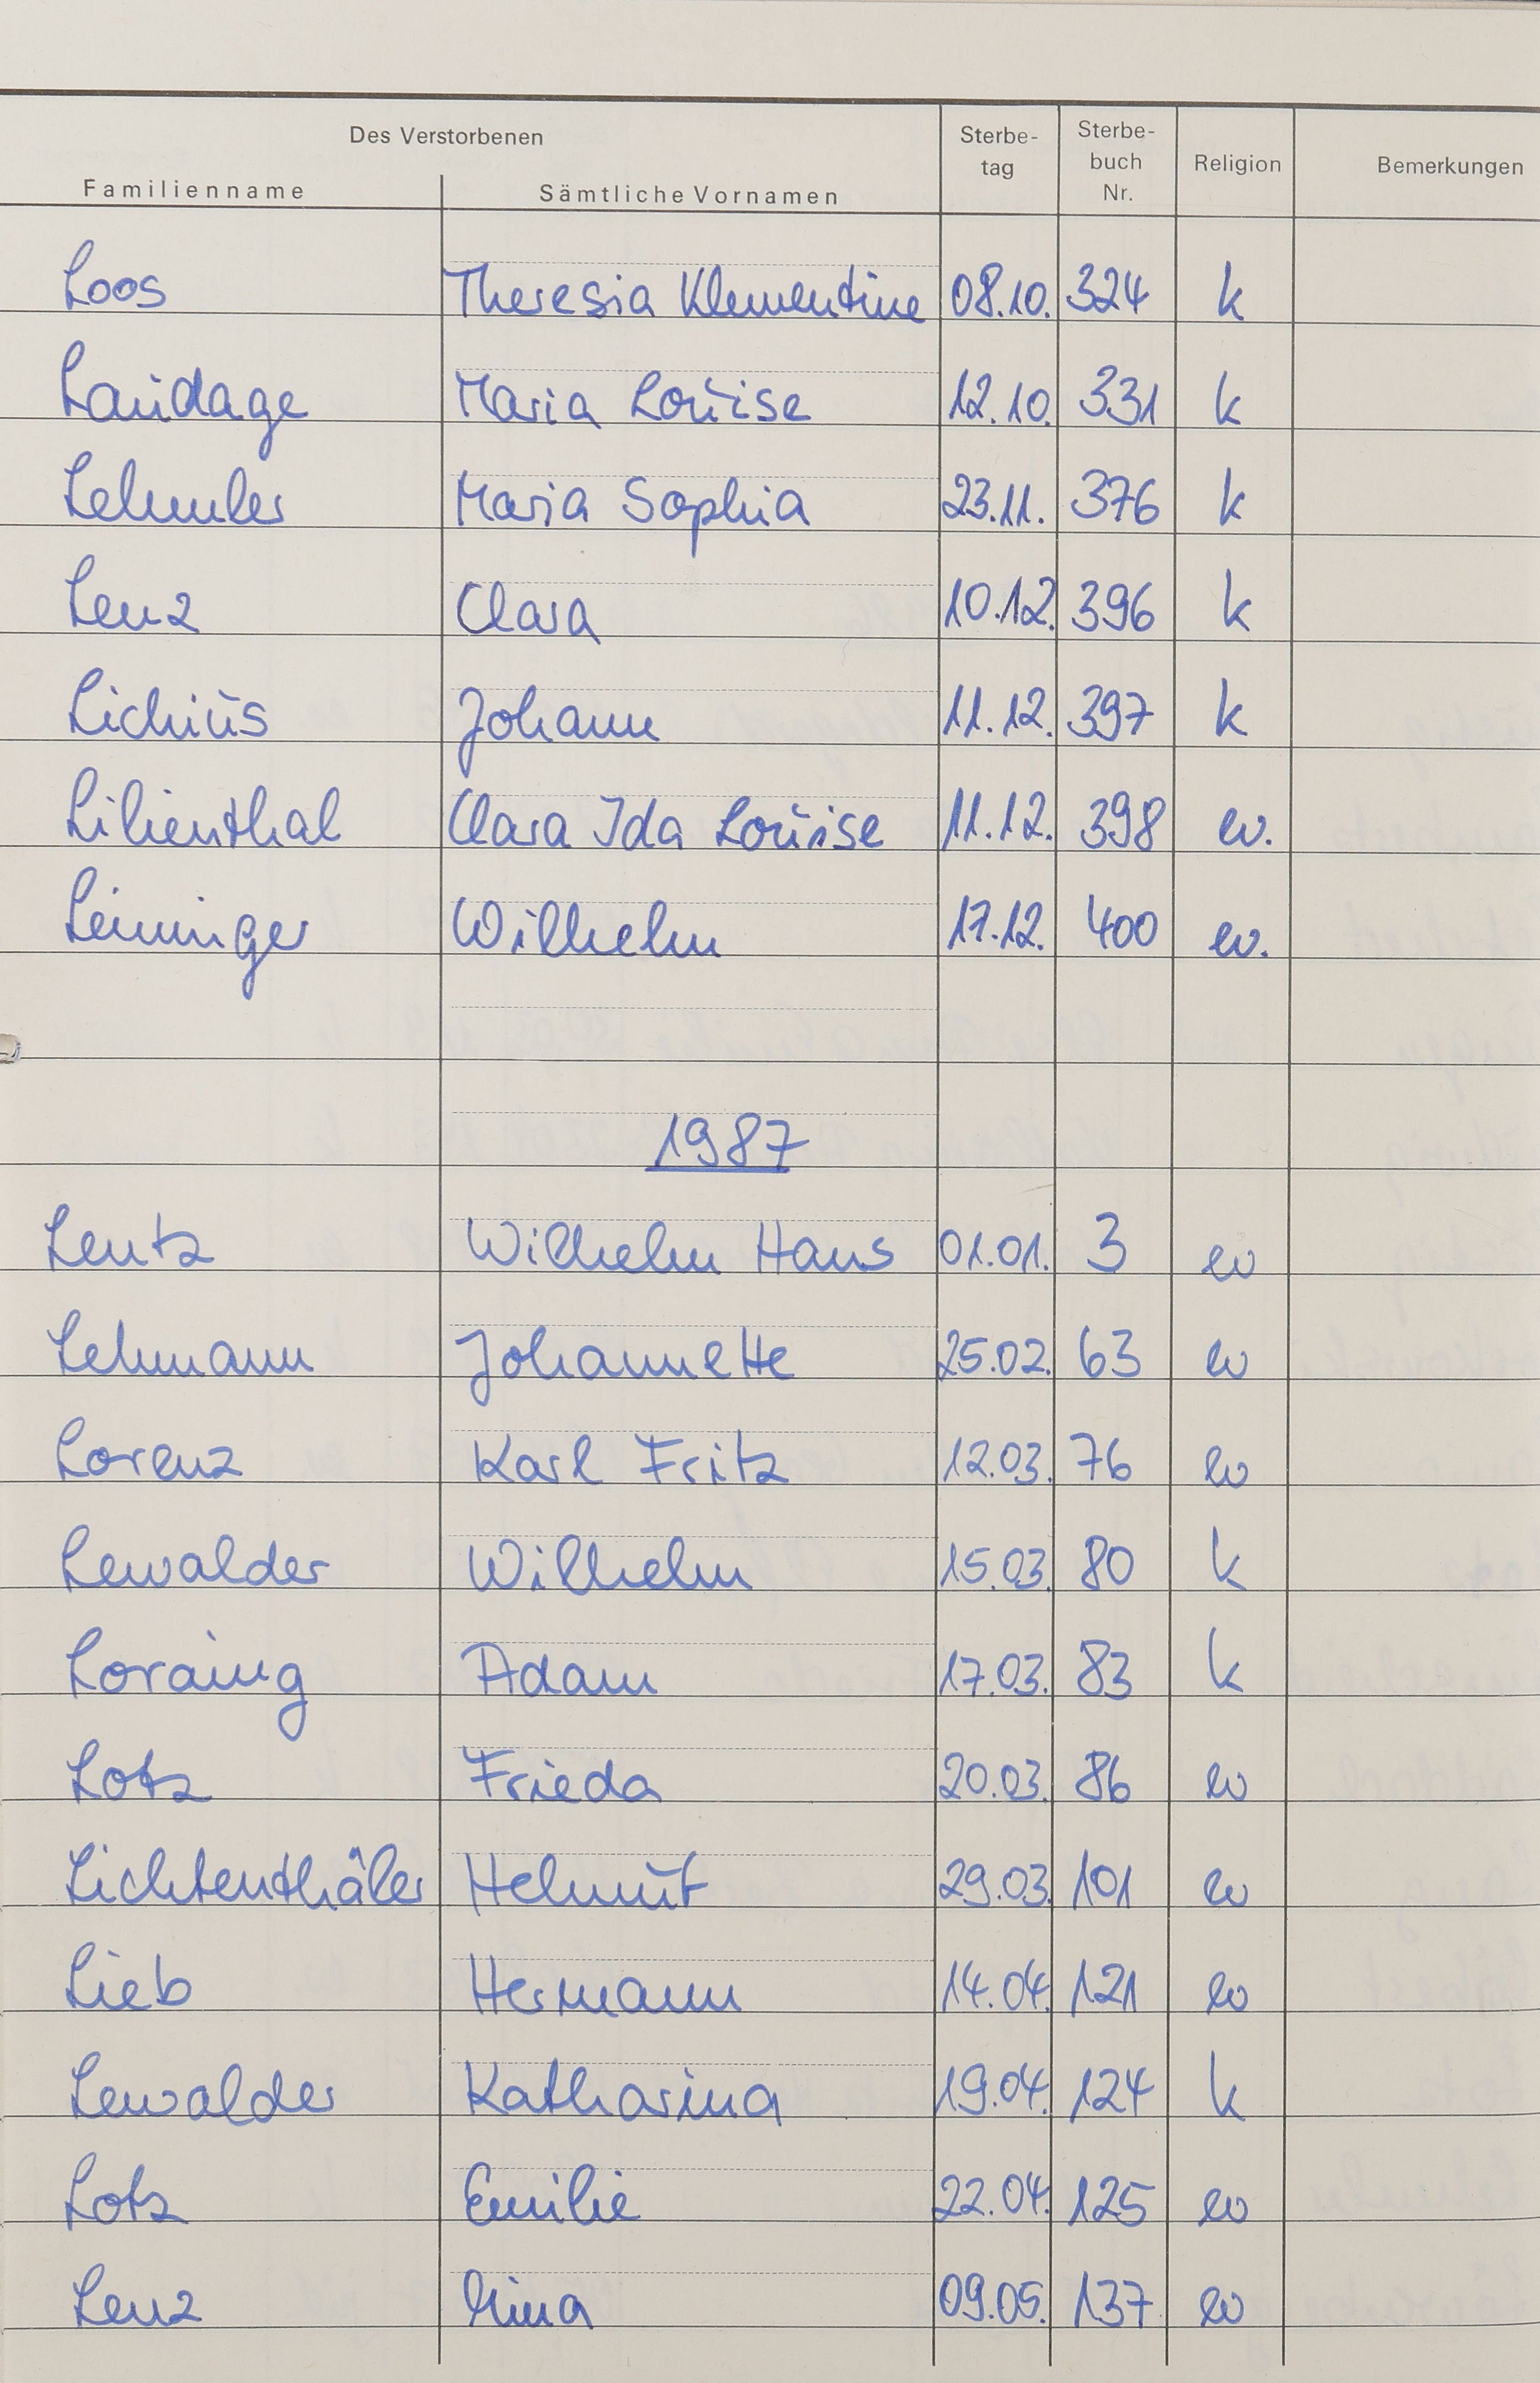 Des Verstorbenen
Familienname Sämtliche Vornamen Sterbe-tag Sterbe-buch Nr. Religion Bemerkungen
Loos Theresia Klementine 08.10. 324 k
Laudage Maria Louise 12.10. 331 k
Lehmler Maria Sophia 23.11. 376 k
Lenz Clara 10.12. 396 k
Lichius Johann 11.12. 397 k
Lilienthal Clara Ida Louise 11.12. 398 ev.
Leininger Wilhelm 17.12. 400 ev.
1987
Lentz Wilhelm Hans 01.01. 3 ev
Lehmann Johannette 25.02. 63 ev
Lorenz Karl Fritz 12.03. 76 ev
Lewalder Wilhelm 15.03. 80 k
Loraing Adam 17.03. 83 k
Lotz Frieda 20.03. 86 ev
Lichtenthäler Helmut 29.03. 101 ev
Lieb Hermann 14.04. 121 ev
Lewalder Katharina 19.04. 124 k
Lotz Emilie 22.04. 125 ev
Lenz 09.05. 137 ev